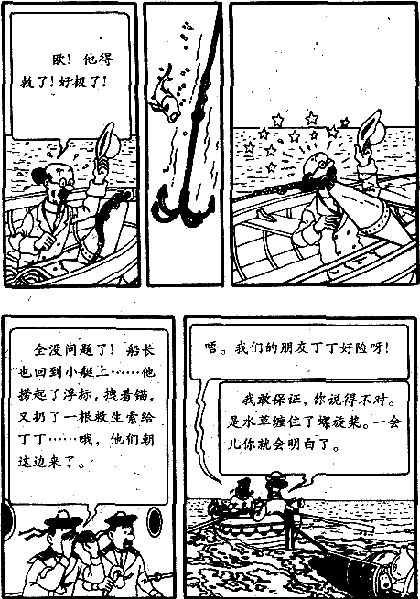 欧！他得
救了！好极了！
全没问题了！船长
也回到小艇上……他
捞起了浮标，拽着锚，
又扔了一根救生索给
丁丁……哦，他们朝
这边来了。
唔。我们的朋友丁丁好险呀！
我敢保证，你说得不对。
是水草缠住了螺旋桨。一会
儿你就会明白了。